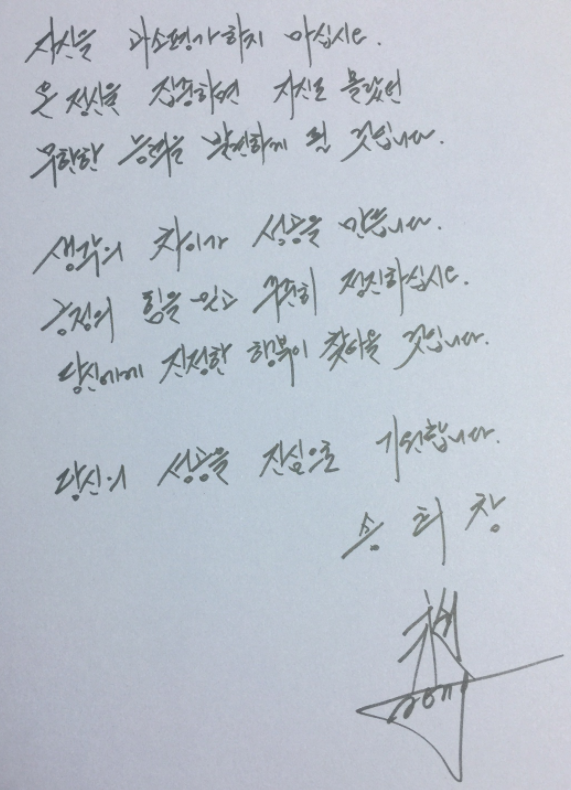 자신을 과소평가하지 마십시오.
온 정신을 집중하면 자신도 몰랐던
무한한 능력을 발견하게 될 것입니다.
생각의 차이가 성공을 만듭니다.
긍정의 힘을 믿고 꾸준히 정진하십시오.
당신에게 진정한 행복이 찾아올 것입니다.
당신의 성공을 진심으로 기원합니다.
송 희 창